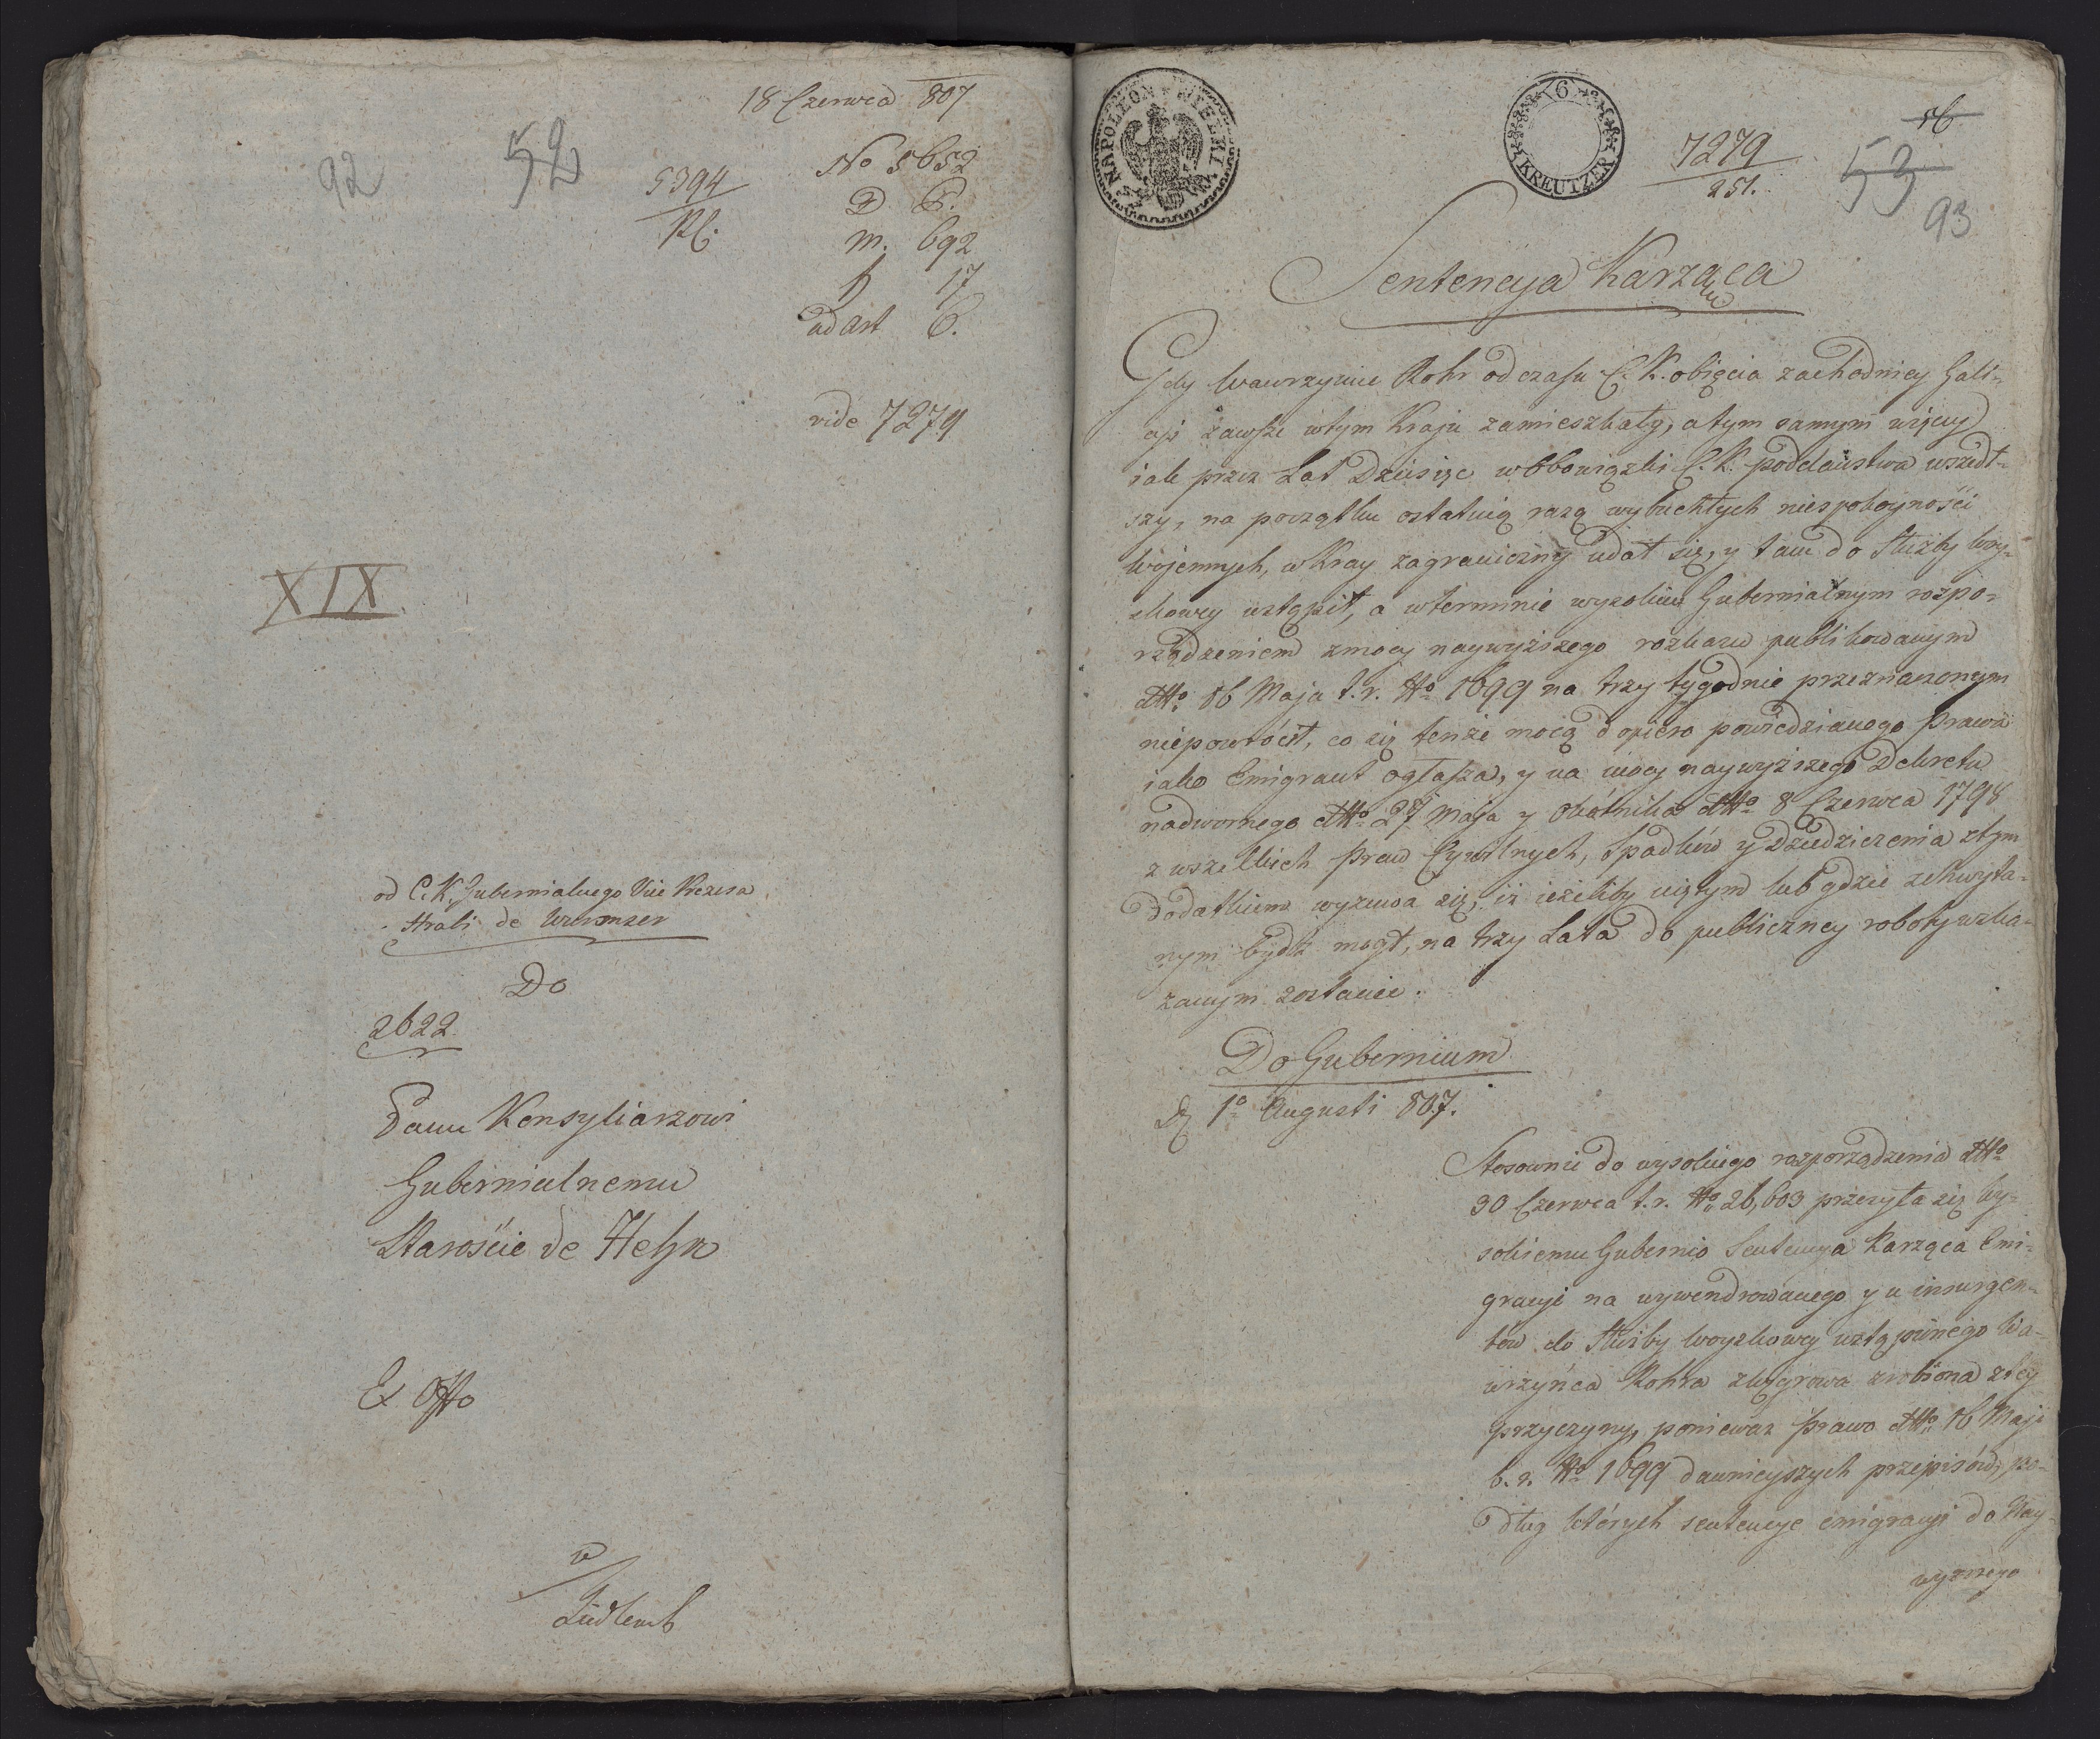 18 Czerwca 807
92
52
5394
No 5652
D. P.
m. 692
h 17
ad art 6.
vide 7279
XIX.
od C. K. Gubernialnego Vice Prezesa
Hrabi de Wurmser
Do
2622
Panu Konsyliarzowi
Gubernialnemu
Starośćie de Hehn
Ex Offo
NAPOLLON WIELKI
6
KREUTZER
7279
251.
56
53
93
Sentencya Karząca
Gdy Wawrzyniec Rohr od czasu C. K. obięcia zachodniey Gali-
cyi zawsze w tym Kraju zamieszkały, a tym samym więcey
iak przez Lat Dziesięc w Obowiązki C. K. poddaństwa wszedł-
szy, na początku ostatnią razą wybuchłych niespokoyności
wojennych, w Kray zagraniczny udał się, y tam do Służby Woy-
skowey ustąpił, a w terminie wysokim Gubernialnym rozpo-
rządzeniem z mocy naywyższego rozkazu publikowanym
dtto 16 Maja t. r. No 1699 na trzy tygodnie przeznaczonym
niepowrócił, co się tenże mocą dopiero powiedzianego Prawa
iako Emigrant ogłasza, y na mocy naywyższego Dekretu
nadwornego dtto 27 Maja y Okólnika dtto 8 Czerwca 1798
z wszelkich Praw Cywilnych, Spadków y Dziedziczenia z tym
Dodatkiem wyzuwa się, iż ieżeliby uiętym lub gdzie zchwyta-
nym bydź mogł, na trzy Lata do publiczney roboty wska-
zanym zostanie.
Do Gubernium
1o Augusti 807.
Stosownie do wysokiego rozporządzenia dtto
30 Czerwca t. r. No 26,603 przesyła się Wy-
sokiemu Gubernio Sentencya Karząca Emi-
gracyi na wywendrowanego y u insurgen-
tów do Służby Woyskowey ustąpionego Wa-
wrzyńca Rohra zrobiona z tey
przyczyny, ponieważ Prawo dtto 16 Maja
b. r. No 1699 dawnieyszych przepisów, po-
dług których sentencye emigracyi do Nay-
wyższego